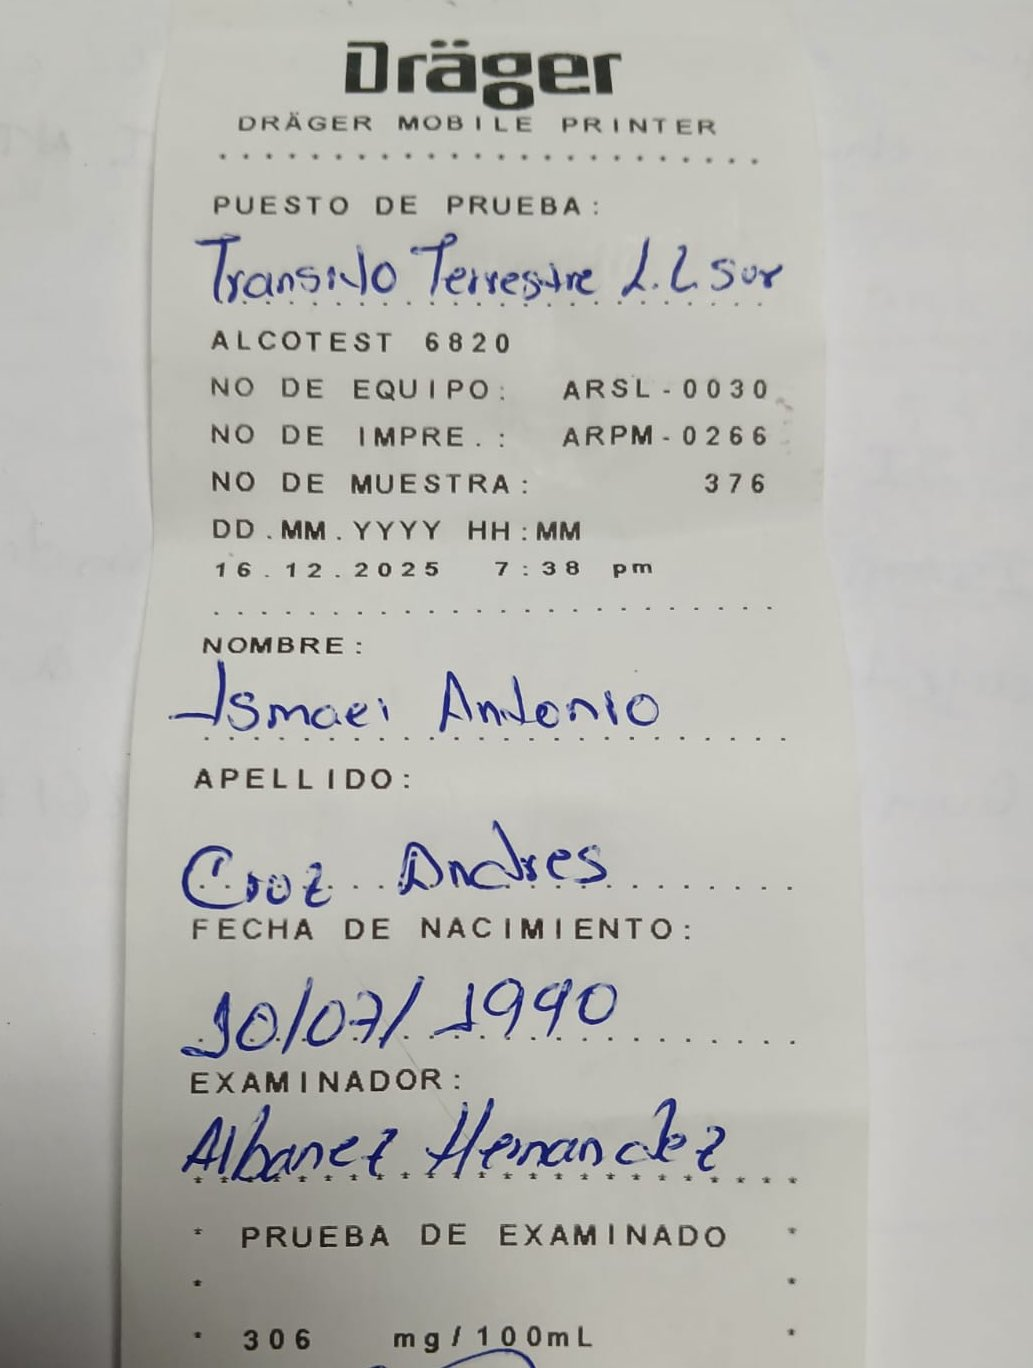 Dräger
DRÄGER MOBILE PRINTER
PUESTO DE PRUEBA:
Transito Terrestre L.L sur
ALCOTEST 6820
NO DE EQUIPO: ARSL-0030
NO DE IMPRE.: ARPM-0266
NO DE MUESTRA: 376
DD.MM.YYYY HH:MM
16.12.2025 7:38 pm
NOMBRE:
Ismael Antonio
APELLIDO:
Cruz Andres
FECHA DE NACIMIENTO:
10/07/1990
EXAMINADOR:
Albanez Hernandez
* PRUEBA DE EXAMINADO *
* *
* 306 mg/100mL *